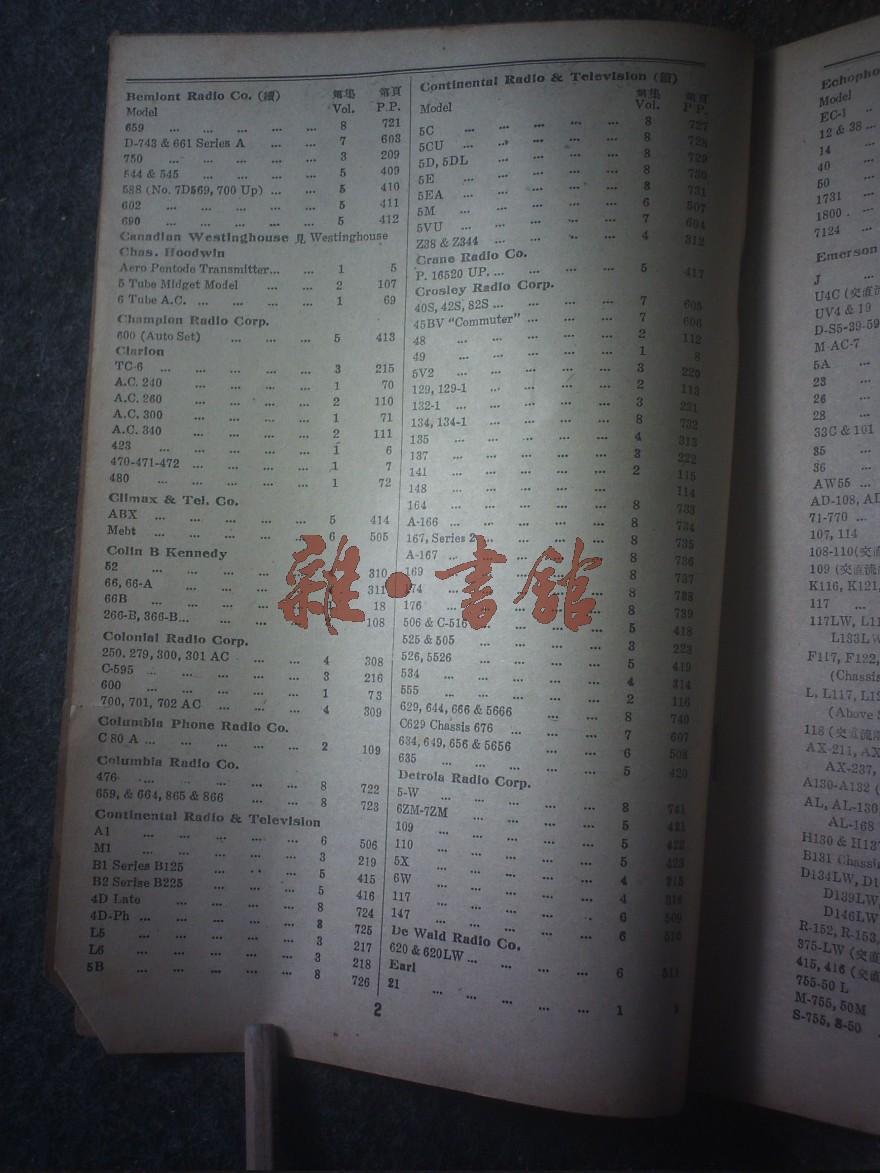 Bemlont Radio Co. (續) 第集 第頁
Model Vol. P.P.
659 ... ... ... ... ... 8 721
D-743 & 661 Series A ... ... 7 603
750 ... ... ... ... ... 3 209
544 & 545 ... ... ... ... 5 409
588 (No. 7D569, 700 Up) ... ... 5 410
602 ... ... ... ... ... 5 411
690 ... ... ... ... ... 5 412
Canadian Westinghouse 見 Westinghouse
Chas. Hoodwin
Aero Pentode Transmitter... ... 1 5
5 Tube Midget Model ... ... 2 107
6 Tube A.C. ... ... ... ... 1 69
Champion Radio Corp.
600 (Auto Set) ... ... ... 5 413
Clarion
TC-6 ... ... ... ... ... 3 215
A.C. 240 ... ... ... ... 1 70
A.C. 260 ... ... ... ... 2 110
A.C. 300 ... ... ... ... 1 71
A.C. 340 ... ... ... ... 2 111
423 ... ... ... ... ... 1 6
470-471-472 ... ... ... ... 1 7
480 ... ... ... ... ... 1 72
Climax & Tel. Co.
ABX ... ... ... ... ... 5 414
Mebt ... ... ... ... ... 6 505
Colin B Kennedy
52 ... ... ... ... 310
66, 66-A ... ... ... 311
66B ... ... ... ... 18
266-B, 366-B... ... ... 108
Colonial Radio Corp.
250. 279, 300, 301 AC ... ... 4 308
C-595 ... ... ... ... ... 3 216
600 ... ... ... ... ... 1 73
700, 701, 702 AC ... ... ... 4 309
Columbia Phone Radio Co.
C 80 A ... ... ... ... ... 2 109
Columbia Radio Co.
476 ... ... ... ... ... 8 722
659, & 664, 865 & 866 ... ... 8 723
Continental Radio & Television
A1 ... ... ... ... ... 6 506
M1 ... ... ... ... ... 3 219
B1 Series B125 ... ... ... 5 415
B2 Serise B225 ... ... ... 5 416
4D Late ... ... ... ... 8 724
4D-Ph ... ... ... ... ... 8 725
L5 ... ... ... ... ... 3 217
L6 ... ... ... ... ... 3 218
5B ... ... ... ... ... 8 726
Continental Radio & Television (續)
第集 第頁
Model Vol. P.P.
5C ... ... ... ... ... 8 727
5CU ... ... ... ... ... 8 728
5D, 5DL ... ... ... ... 8 729
5E ... ... ... ... ... 8 730
5EA ... ... ... ... ... 8 731
5M ... ... ... ... ... 6 507
5VU ... ... ... ... ... 7 604
Z38 & Z344 ... ... ... ... 4 312
Crane Radio Co.
P. 16520 UP. ... ... ... ... 5 417
Crosley Radio Corp.
40S, 42S, 82S ... ... ... ... 7 605
45BV "Commuter" ... ... ... 7 606
48 ... ... ... ... ... 2 112
49 ... ... ... ... ... 1 8
5V2 ... ... ... ... ... 3 220
129, 129-1 ... ... ... ... 2 113
132-1 ... ... ... ... ... 3 221
134, 134-1 ... ... ... ... 8 732
135 ... ... ... ... 4 313
137 ... ... ... ... 3 222
141 ... ... ... ... 2 115
148 ... ... ... ... 114
164 ... ... ... ... 8 733
A-166 ... ... ... ... 8 734
167, Series 2 ... ... ... 8 735
A-167 ... ... ... ... 8 736
169 ... 8 737
174 ... 8 738
176 ... 8 739
506 & C-516 ... 5 418
525 & 505 ... 3 223
526, 5526 ... ... ... ... 5 419
534 ... ... ... ... 4 314
555 ... ... ... ... 2 116
629, 644, 666 & 5666 ... ... 8 740
C629 Chassis 676 ... ... ... 7 607
634, 649, 656 & 5656 ... ... 6 508
635 ... ... ... ... 5 420
Detrola Radio Corp.
5-W ... ... ... ... 8 741
6ZM-7ZM ... ... ... ... 5 421
109 ... ... ... ... 5 422
110 ... ... ... ... 5 423
5X ... ... ... ... 4 315
6W ... ... ... ... 4 316
117 ... ... ... ... 6 509
147 ... ... ... ... 6 510
De Wald Radio Co.
620 & 620LW ... ... ... ... 6 511
Earl
21 ... ... ... ... ... 1
2
雜·書館
Echopho
Model
EC-1
12 & 38 ...
14
40
50
1731
1800
7124
Emerson
J
U4C (交直
UV4 & 19
D-S5-39-59
M-AC-7
5A
23
26
28
33C & 101
35
36
AW55
AD-108, AD
71-770 ...
107, 114
108-110(交直
109 (交直流
K116, K121,
117
117LW, L11
L133LW
F117, F122,
(Chassis
L, L117, L12
(Above S
118 (交直流
AX-211, AX
AX-237,
A130-A132 (
AL, AL-130,
AL-168
H130 & H137
B131 Chassi
D134LW, D1
D139LW,
D146LW
R-152, R-153,
375-LW (交直
415, 416 (交
755-50 L
M-755, 50M
S-755, S-50